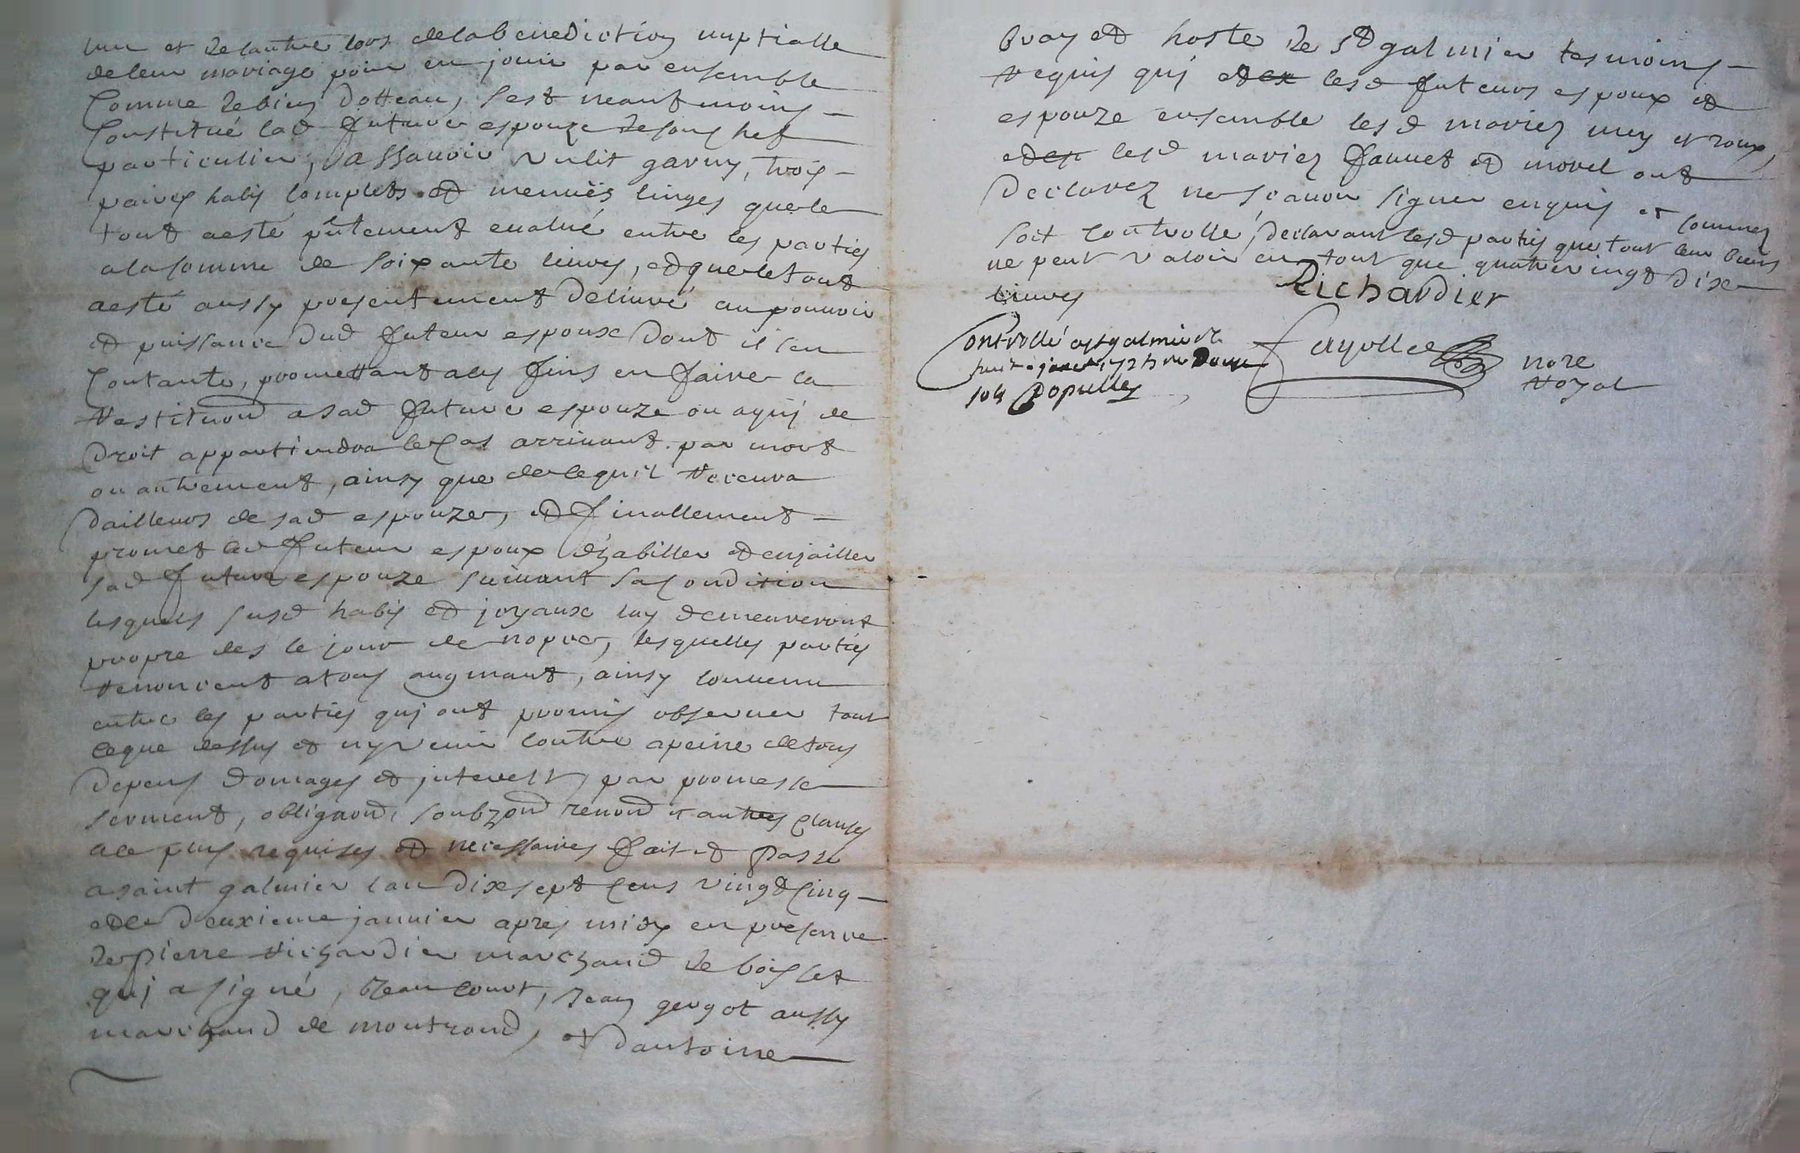 lun et delautre lors delabenediction nuptialle
deleur mariage pour en jouir par ensemble
Comme debien dotteau, sest neant moins
Constitué lad future espouze desons hef
particulier, assavoir un lit garny, trois
paires habis Complets et menues linges quele
tout aesté pntement evalué entre les parties
alasomme de soixante livres, et queletout
aesté aussy presentement delivré au pouvoir
et puissance dud futeur espoux dont il sen
Contante, promettant ales fins en faire la
restituond asad future espouze ou aquj de
droit appartiendra le Cas arrivant par mort
ou autrement, ainsy que de ce quil recevra
dailleurs de sad espouze, et finallement
promet led futeur espoux dhabiller et enjailler
sad future espouze suivant sa Condition
lesquels susd habis et joyaux luy demeureront
propre des le jour de nopce, lesquelles parties
renoncent atous augmant, ainsy convenu
entre les parties quj ont promis observer tout
ceque dessus et ny venir Contre apeine detous
depens domages et jnterests par promesse
serment, obligaond, soubzond renond et autres Clauses
ace plus requises et necessaires fait et passé
asaint galmier lan dix sept Cens vingt Cinq
et le deuxieme janvier apres midy en presence
de pierre richardier marchand de boisset
quj a signé, jean gergot aussy
marchand de montrond, et dantoine
bray et hoste de st galmier tesmoins
requis quj et lesd futeurs espoux et
espouze ensemble lesd mariez et roux,
et lesd mariez fannet et morel ont
declarez ne scavoir signer enquis et sommez
soit Controllé, declarant lesd parties que tout leur biens
ne peut valoir en tout que quatrevingt dix
livres
Richardier
Controllé a st galmier le
huit janvier 1725 Reçu Douze
sols Populle
Fayolle nore
royal